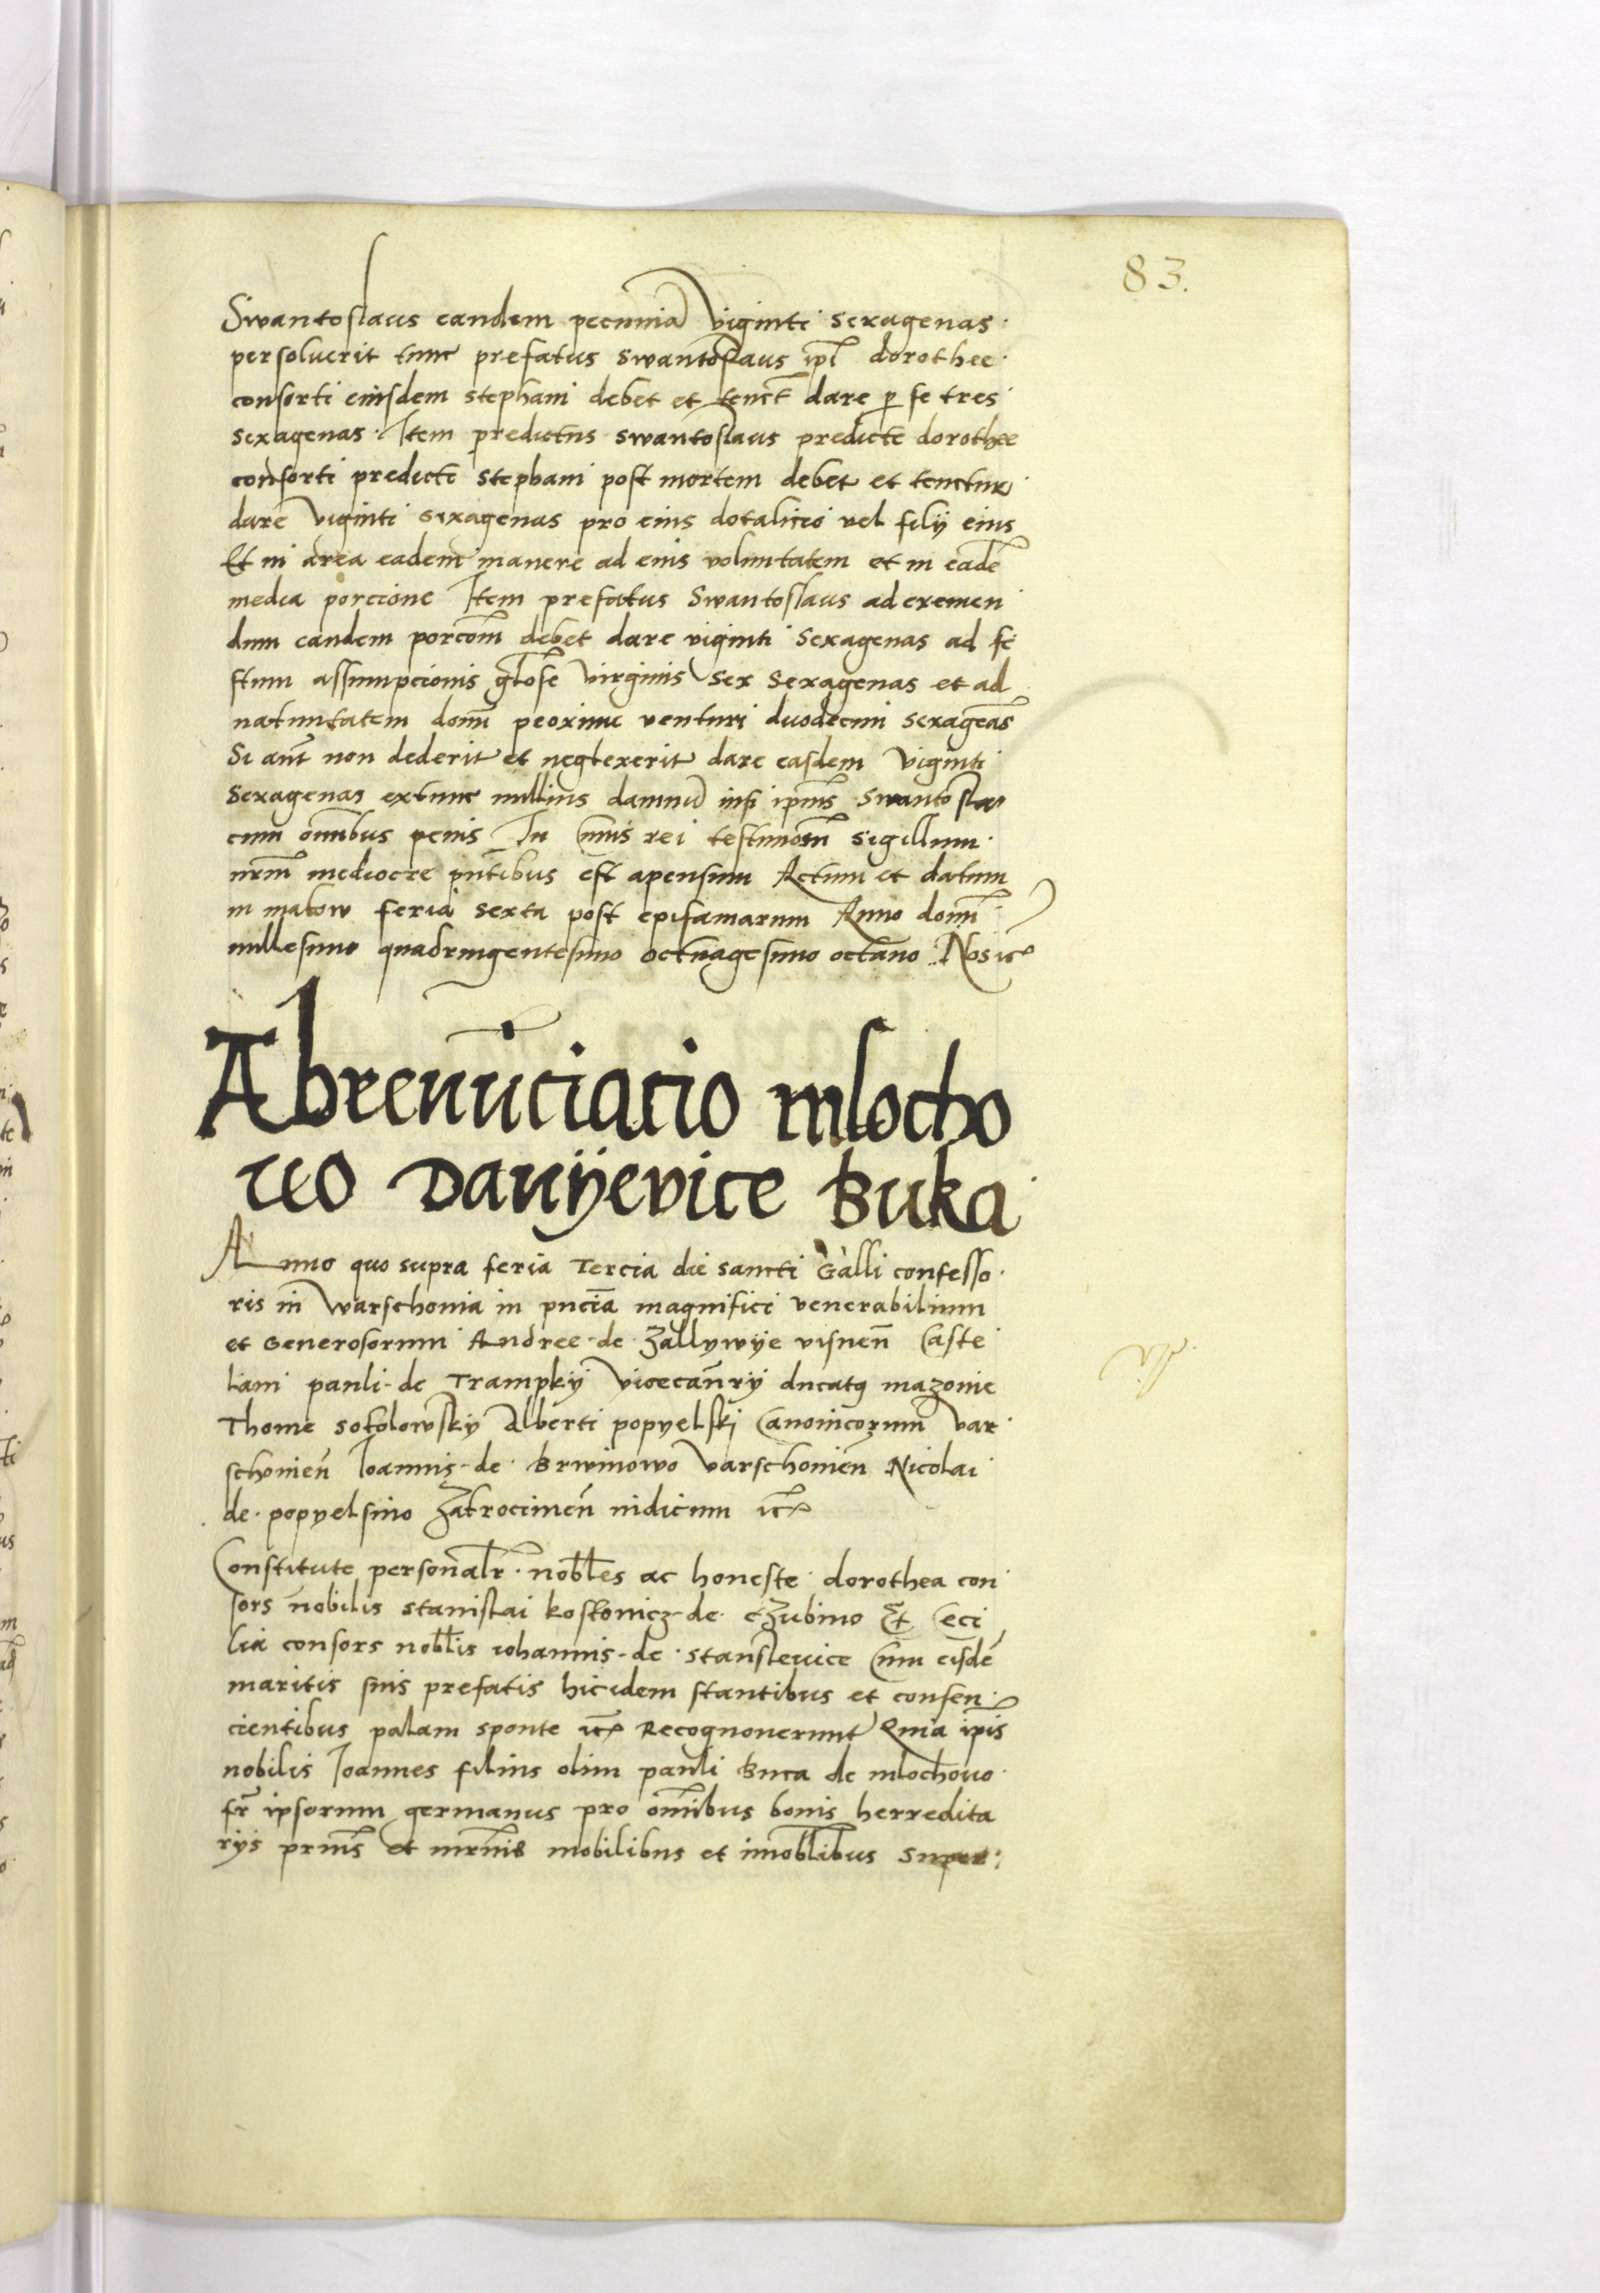 83.
Swantoslaus eandem pecuniã viginti sexagenas
persoluerit tunc prefatus swantoslaus ipĩ dorothee
consorti eiusdem stephani debet et tenet̃ dare p se tres
sexagenas. Item predictus swantoslaus predicte dorothee
consorti predicti stephani post mortem debet et tenetur
dare viginti sexagenas pro eius dotalicio vel filij eius
Et in area eadem manere ad eius voluntatem et in eadẽ
media porcione Item prefatus Swantoslaus ad exemen
dum eandem porcom̃ debet dare viginti sexagenas ad fe
stum assumpcionis gl̃ose virginis sex sexagenas et ad
natiuitatem domĩ proxime venturi duodecim sexageãs
Si aut̃ non dederit et neglexerit dare easdem viginti
sexagenas extunc nullius damnũ ipsius Swantoslai
cum om̃ibus penis In cuius rei testimom̃ sigillum
nr̃m mediocre pñtibus est apensum Actum et datum
in makow feria sexta post epifaniarum Anno domĩ
millesimo quadringentesimo octuagesimo octauo Nos itc̃
Abrenũciacio mlocho
wo Danijevice Buka
Anno quo supra feria Tercia die sancti Galli confesso
ris in Warschouia in pñcia magnifici venerabilium
et Generosorum Andree de Zallywije visneñ Caste
lani pauli de Trampkij vicecañrij ducatus mazouie
Thome sokolowskij Alberti popyelski Canonicorum var
schouieñ Ioannis de Brwinowo varschouieñ Nicolai
de popyelsino Zakrocimeñ iudicum itc̃
Constitute personalr̃ nobl̃es ac honeste dorothea con
sors nobilis stanislai kostonicz de cZubino Et Ceci
lia consors nobl̃is iohannis de stanslevice Cum eisdẽ
maritis suis prefatis hicidem stantibus et consen
cientibus palam sponte itc̃ Recognouerunt Quia ip̃is
nobilis Ioannes filius olim pauli Buca de mlochouo
fr̃ ipsorum germanus pro om̃ibus bonis herredita
rijs prñis et mrñis mobilibus et imobl̃ibus super